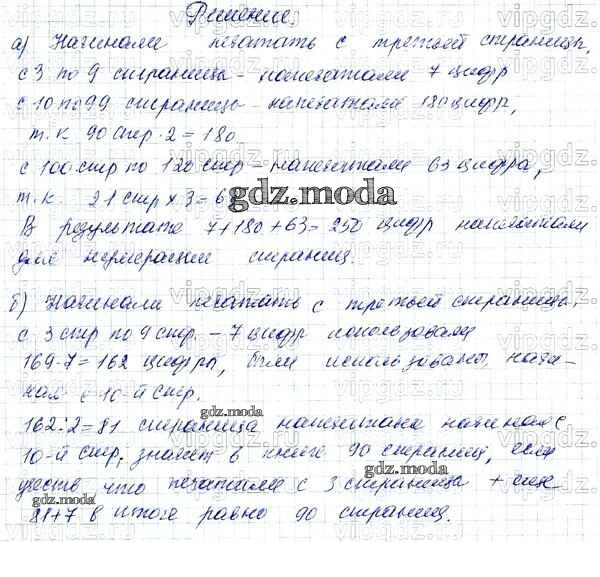 Решение.
а) Начинали печатать с третьей страницы.
с 3 по 9 страницы - напечатали 7 цифр
с 10 по 99 страницы - напечатали 180 цифр,
т.к 90 стр · 2 = 180
с 100 стр по 120 стр - напечатали 63 цифра,
т.к. 21 стр х 3 = 6
gdz.moda
В результате 7+180+63=250 цифр напечатали
для нумерации страниц.
б) Начинали печатать с третьей страницы.
с 3 стр по 9 стр. - 7 цифр использовали
169-7=162 цифры, были использованы, начи-
ная с 10-й стр.
gdz.moda
162:2=81 страница напечатана начиная с
10-й стр, значит в книге 90 страниц, если
gdz.moda
gdz.moda
учесть что печатали с 3 страницы + еще
81+7 в итоге равно 90 страниц.